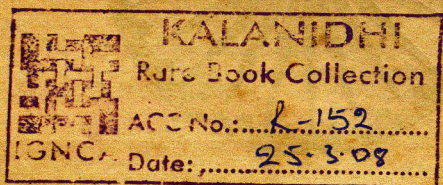 KALANIDHI
Rare Book Collection
ACC No.: R-152
IGNCA
Date: 25.3.08